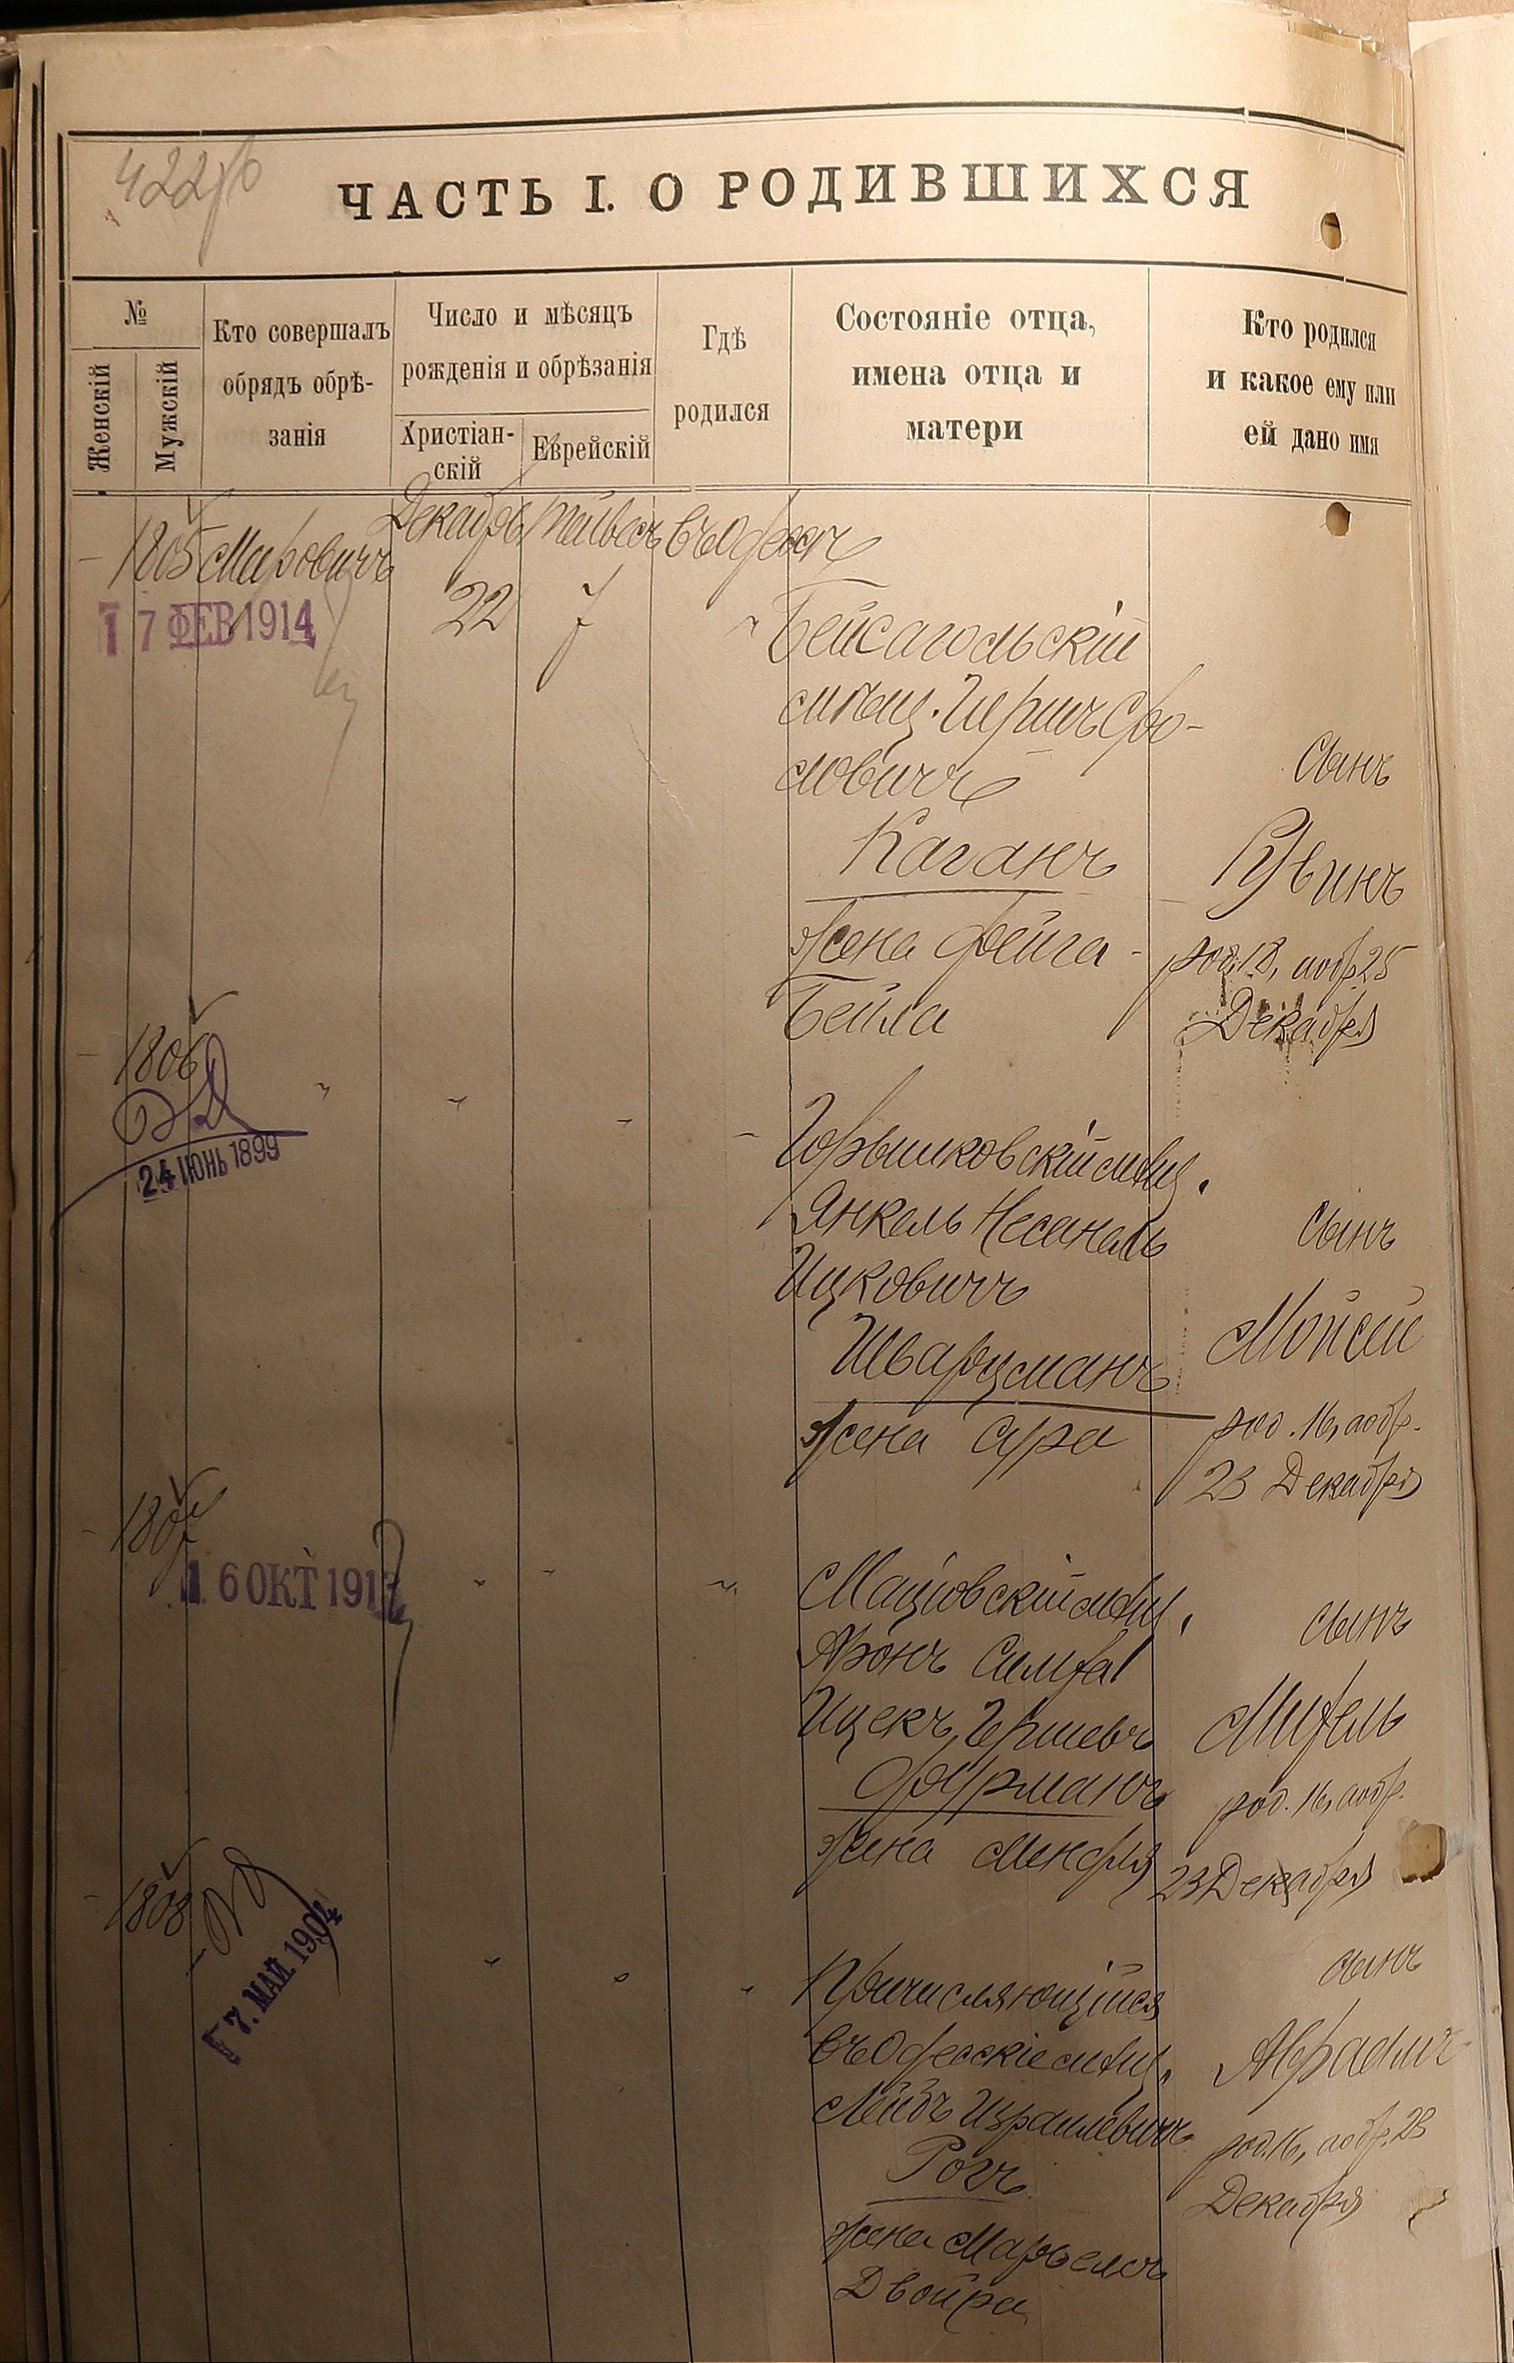 422 об
ЧАСТЬ I. О РОДИВШИХСЯ
№
Женскій
Мужскій
Кто совершалъ
обрядъ обрѣ-
занія
Число и мѣсяцъ
рожденія и обрѣзанія
Христіан-
скій
Еврейскій
Гдѣ
родился
Состояніе отца,
имена отца и
матери
Кто родился
и какое ему или
ей дано имя
1805 Мировичъ Декабрь Тейвесъ въ Одессѣ
22 7
17 ФЕВ 1914
Бейсагольскій
мѣщ. Гершъ Сро-
ловичъ
Каганъ
жена Фейга-
Бейла
сынъ
Рувинъ
род. 18, а обр. 25
Декабря
1806
24 ІЮНЬ 1899
мѣщ.
Янкель Несанель
Ицковичъ
Шварцманъ
жена Сура
сынъ
Мойсей
род. 16, а обр.
23 Декабря
1807
16 ОКТ 191
Маціовскій мѣщ.
Аронъ Симха
Ицекъ Гершевъ
Фурманъ
жена Миндля
сынъ
Михель
род. 16, а обр.
23 Декабря
1808
7. МАЙ 1904
Причисляющійся
въ Одесскіе мѣщ.
Лейбъ Израилевичъ
Рогъ
жена
Двойра
сынъ
Абрамъ
род. 16, а обр. 23
Декабря